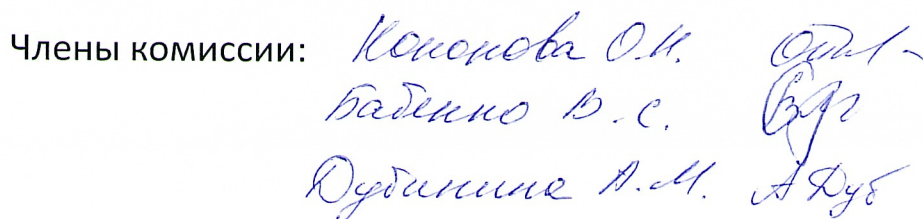 Члены комиссии: Кононова О.Н.
Бабенко В.С.
Дубинина А.М. АДуб